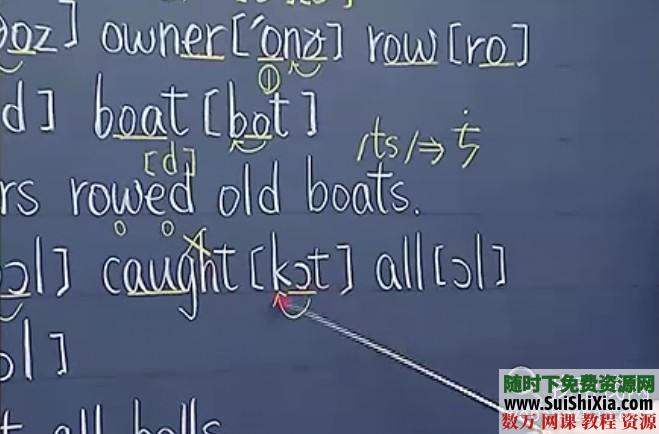 oz] owner[ˈonɚ] row[ro]
①
d] boat[bot]
[d] /ts/⇒ㄘ
rs rowed old boats.
ɔl] caught[kɔt] all[ɔl]
ɔl]
t all balls
随时下免费资源网
www.SuiShiXia.com
数万 网课 教程 资源